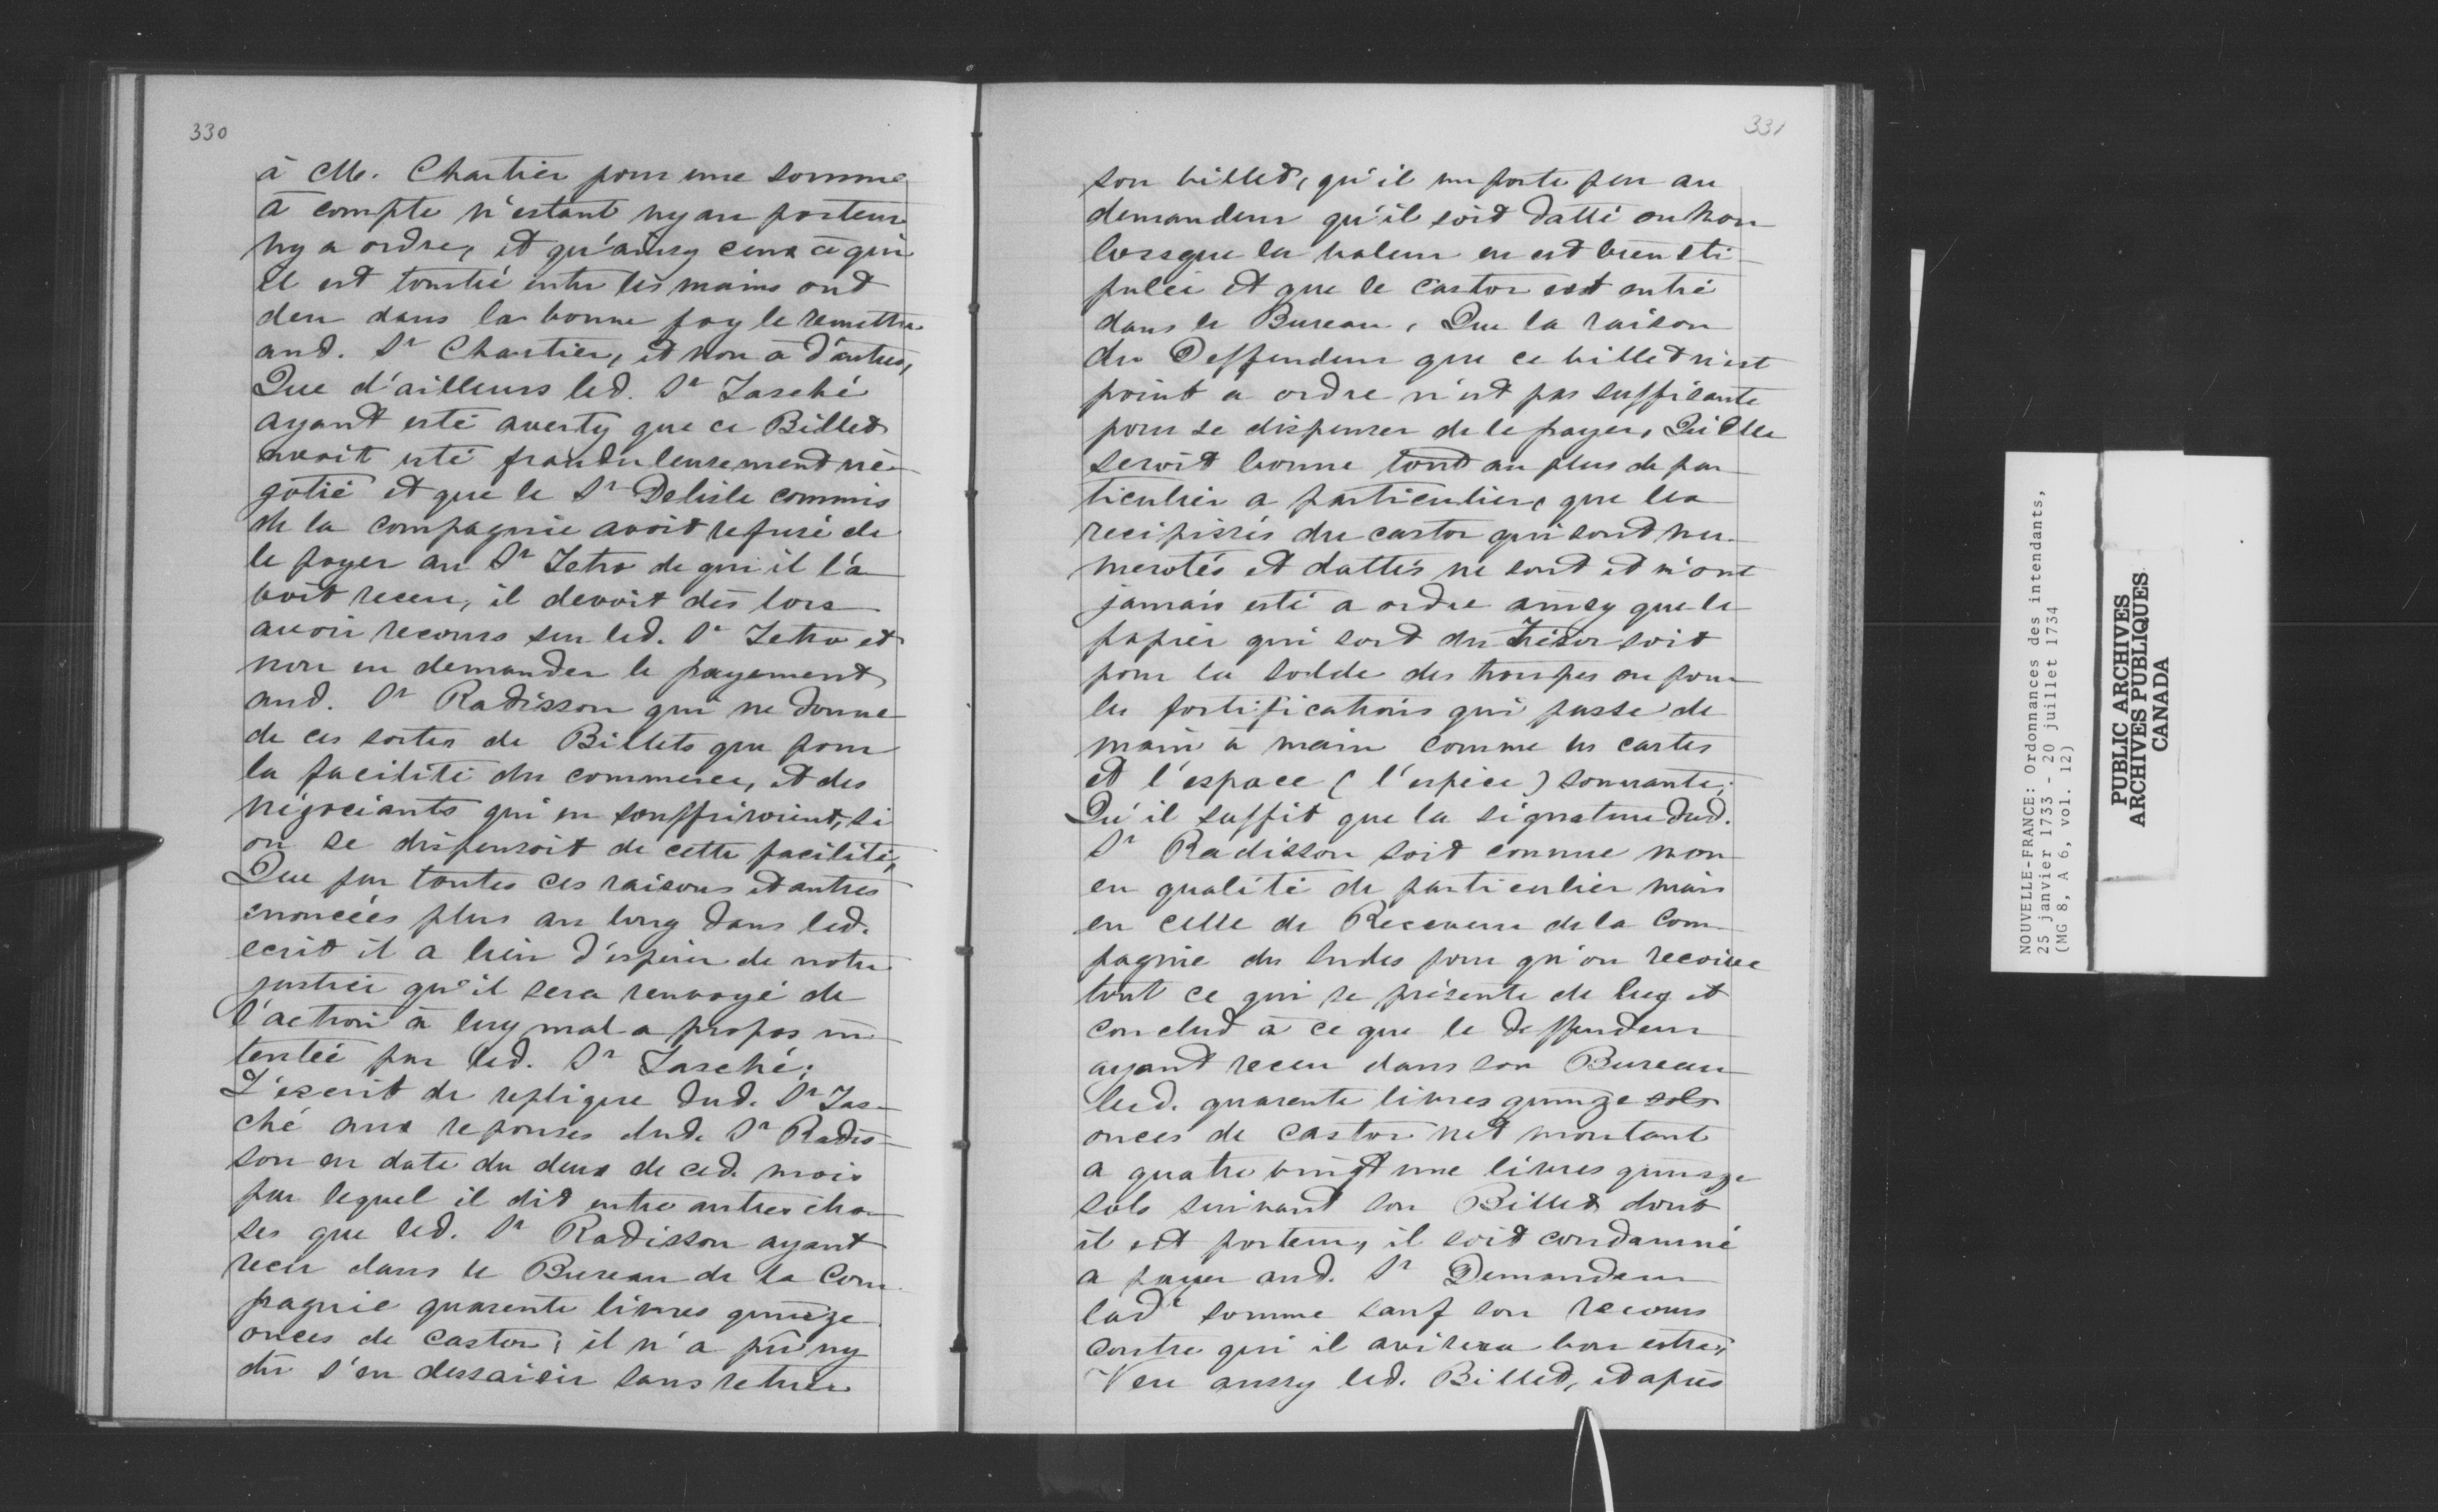 330
à Me. Chartier pour une somme
à compte n'estant ny au porteur
ny a ordre, et qu'ainsy ceux à qui
il est tombé entre les mains ont
deu dans la bonne foy le remettre
aud. Sr Chartier, et non à d'autres,
Que d'ailleurs led. Sr Tasché
ayant esté averty que ce Billet
avoit esté frauduleusement né-
gotié et que le Sr Delisle commis
de la compagnie avoit refusé de
le payer au Sr Jetro de qui il l'a-
voit receu, il devoit dès lors
avoir recours sur led. Sr Jetro et
non en demander le payement
aud. Sr Radisson qui ne donne
de ces sortes de Billets que pour
la facilité du commerce, et des
négociants qui en souffriroient, si
on se dispensoit de cette facilité,
Que par toutes ces raisons et autres
enoncées plus au long dans led.
ecrit il a lieu d'espérer de notre
justice qu'il sera renvoyé de
l'action à luy mal a propos in-
tentée par led. Sr Tasché;
L'escrit de replique dud. Sr Tas-
ché aux reponses dud. Sr Radis-
son en date du deux de ced. mois
par lequel il dit entre autres cho-
ses que led. Sr Radisson ayant
receu dans le Bureau de la Com-
pagnie quarente livres quinze
onces de castor; il n'a pû ny
dû s'en dessaisir sans retirer
331
son billet, qu'il importe peu au
demandeur qu'il soit datté ou non
lorsque la valeur en est bien sti-
pulée et que le castor est entré
dans le Bureau, Que la raison
du Deffendeur que ce billet n'est
point a ordre n'est pas suffisante
pour se dispenser de le payer, Qu'elle
seroit bonne tout au plus de par-
ticulier a particulier, que les
recipissés du castor qui sont nu-
merotés et dattés ne sont et n'ont
jamais esté a ordre ainsy que le
papier qui sort du Trésor soit
pour la solde des troupes ou pour
les fortifications qui passe de
main à main comme les cartes
et l'espace (l'espèce) sonnante;
Qu'il suffit que la signature dud.
Sr Radisson soit connue non
en qualité de particulier mais
en celle de Receveur de la Com-
pagnie des Indes pour qu'on recoive
tout ce qui se présente de luy et
conclud à ce que le deffendeur
ayant receu dans son Bureau
lesd. quarente livres quinze sols
onces de castor net montant
a quatre vingt une livres quinze
sols suivant son Billet dont
il est porteur, il soit condamné
a payer aud. Sr Demandeur
lade somme sauf son recours
contre qui il avisera bon estre;
Veu aussy led. Billet, et après
NOUVELLE-FRANCE: Ordonnances des intendants,
25 janvier 1733 - 20 juillet 1734
(MG 8, A 6, vol. 12)
PUBLIC ARCHIVES
ARCHIVES PUBLIQUES
CANADA